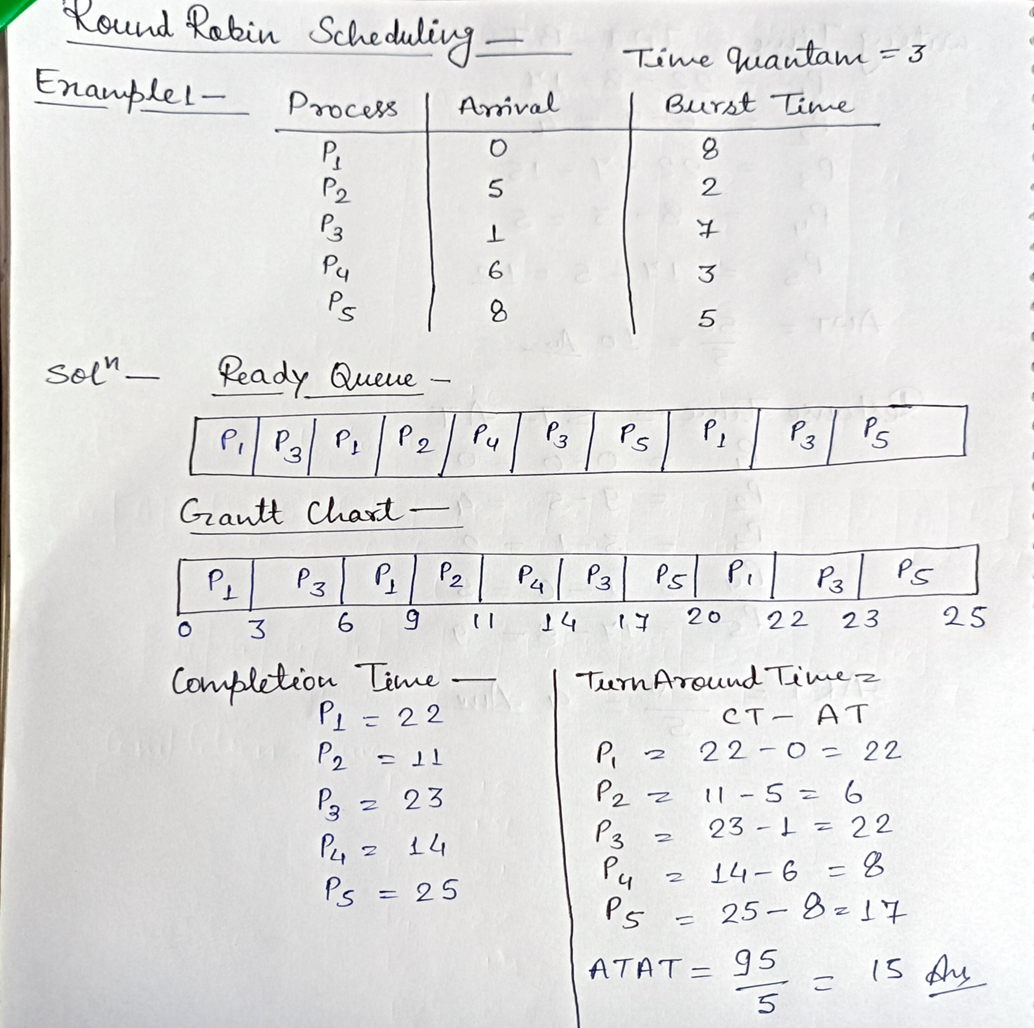 Round Robin Scheduling —
Time Quantam = 3
Example 1 —
Process Arrival Burst Time
P1 0 8
P2 5 2
P3 1 7
P4 6 3
P5 8 5
Solⁿ — Ready Queue —
P1 P3 P1 P2 P4 P3 P5 P1 P3 P5
Grantt Chart —
P1 P3 P1 P2 P4 P3 P5 P1 P3 P5
0 3 6 9 11 14 17 20 22 23 25
Completion Time —
P1 = 22
P2 = 11
P3 = 23
P4 = 14
P5 = 25
Turn Around Time =
CT - AT
P1 = 22 - 0 = 22
P2 = 11 - 5 = 6
P3 = 23 - 1 = 22
P4 = 14 - 6 = 8
P5 = 25 - 8 = 17
ATAT = 95/5 = 15 Ans